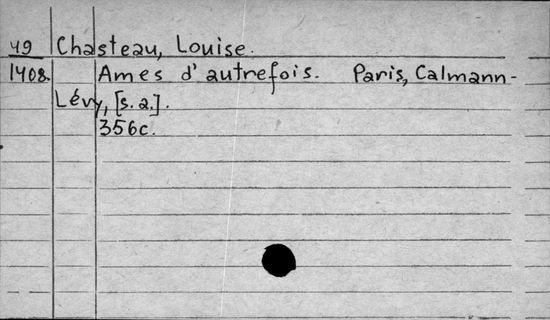 49 Chasteau, Louise.
1408. Ames d'autrefois. Paris, Calmann-
Lévy, [s.a.].
356c.